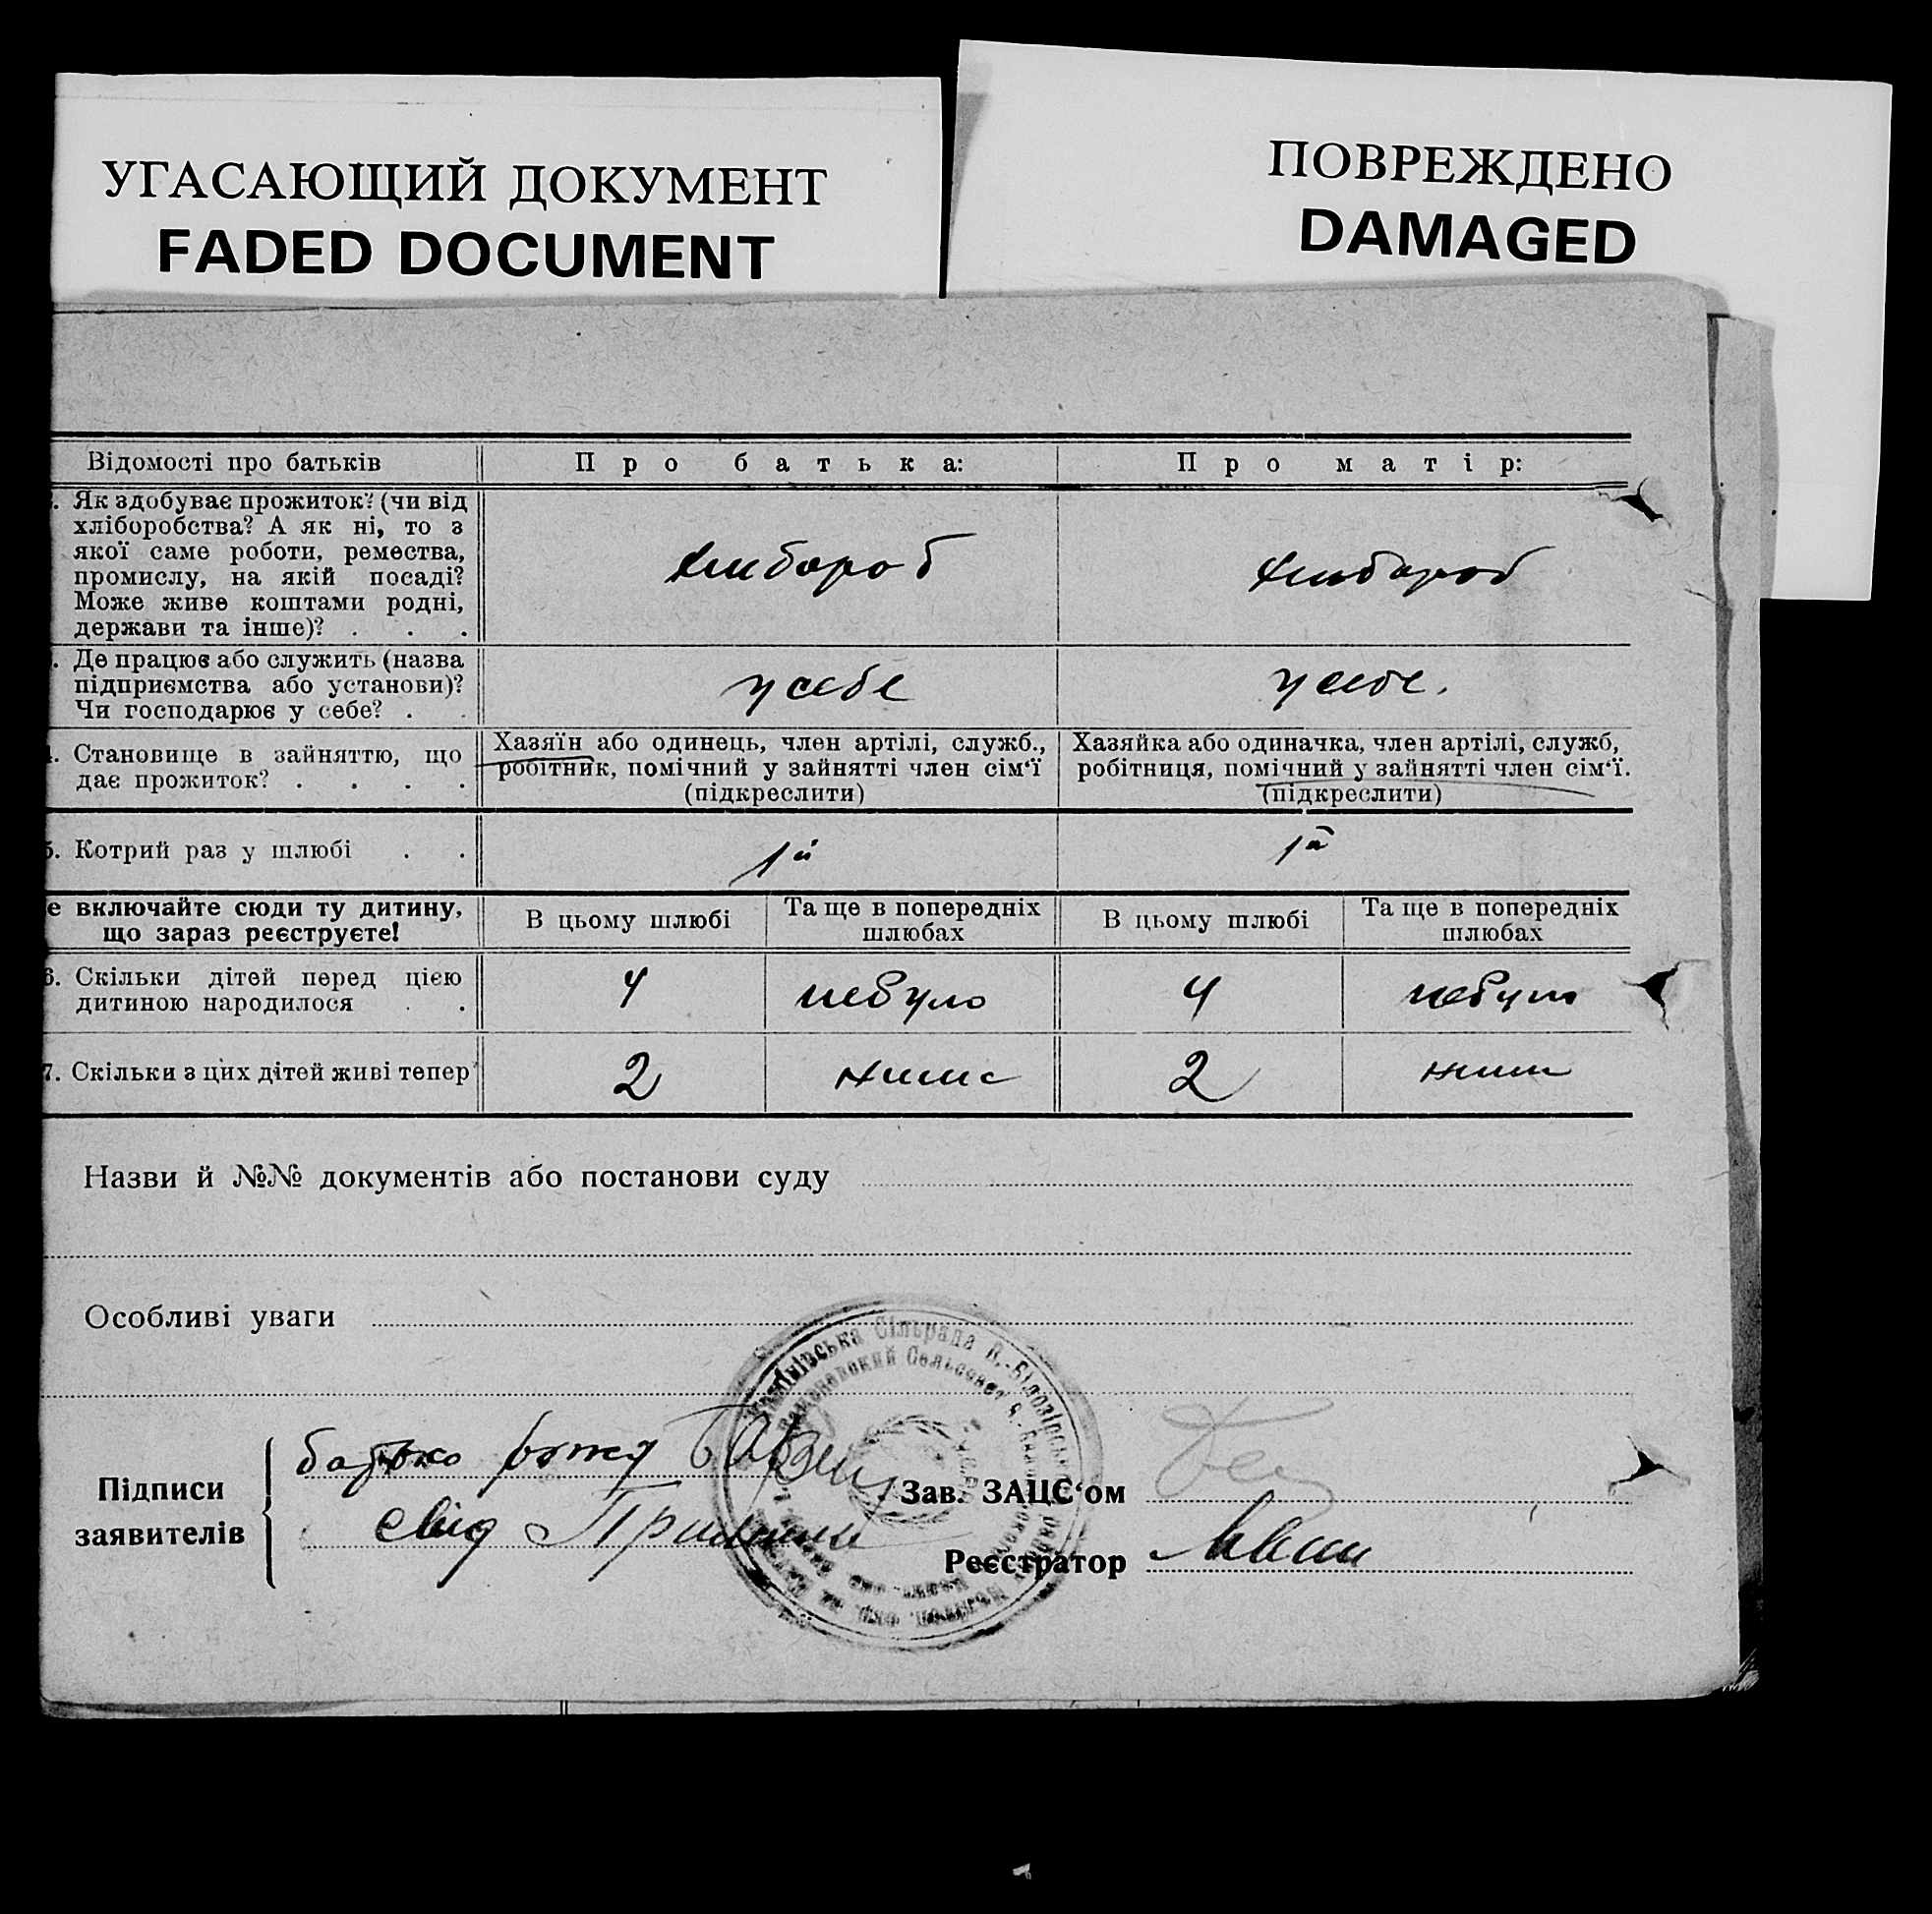 УГАСАЮЩИЙ ДОКУМЕНТ
FADED DOCUMENT
ПОВРЕЖДЕНО
DAMAGED
Відомості про батьків
Про батька:
Про матір:
Як здобуває прожиток? (чи від
хліборобства? А як ні, то з
якої саме роботи, ремества,
промислу, на якій посаді?
Може живе коштами родні,
держави та інше)? . . .
хлибороб
хлибороб
Де працює або служить (назва
підприємства або установи)?
Чи господарює у себе? . .
у себе
у себе.
Становище в зайняттю, що
дає прожиток? . . . .
Хазяїн або одинець, член артілі, служб.,
робітник, помічний у зайнятті член сім'ї
(підкреслити)
Хазяйка або одиначка, член артілі, служб,
робітниця, помічний у зайнятті член сім'ї.
(підкреслити)
5. Котрий раз у шлюбі . .
1й
1й
е включайте сюди ту дитину,
що зараз реєструєте!
В цьому шлюбі
Та ще в попередніх
шлюбах
В цьому шлюбі
Та ще в попередніх
шлюбах
6. Скільки дітей перед цією
дитиною народилося . .
4
небуло
4
небуло
7. Скільки з цих дітей живі тепер
2
2
Назви й №№ документів або постанови суду
Особливі уваги
Підписи
заявителів
батько
свід
Зав. ЗАЦС'ом
Реєстратор
Сільрада